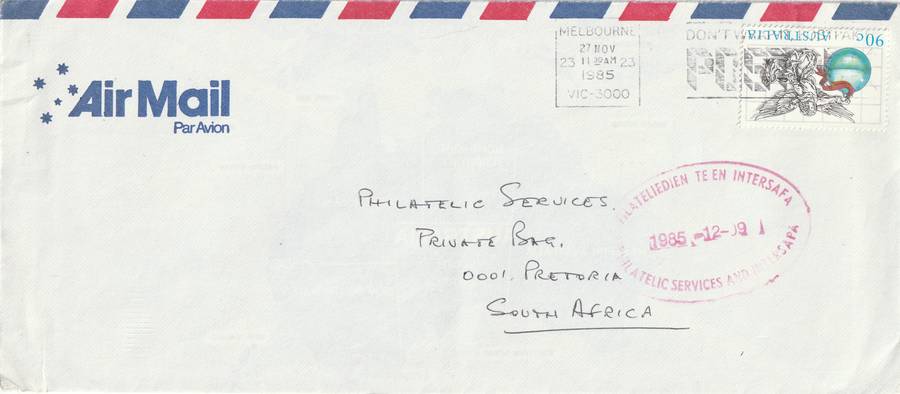 MELBOURNE
27 NOV
23 11 30AM 23
1985
VIC-3000
DON'T
90c AUSTRALIA
Air Mail
Par Avion
PHILATELIC SERVICES.
PRIVATE BAG,
0001. PRETORIA
SOUTH AFRICA
FILATELIEDIEN TE EN INTERSAFA
1985 -12-09 1
PHILATELIC SERVICES AND INTERSAPA